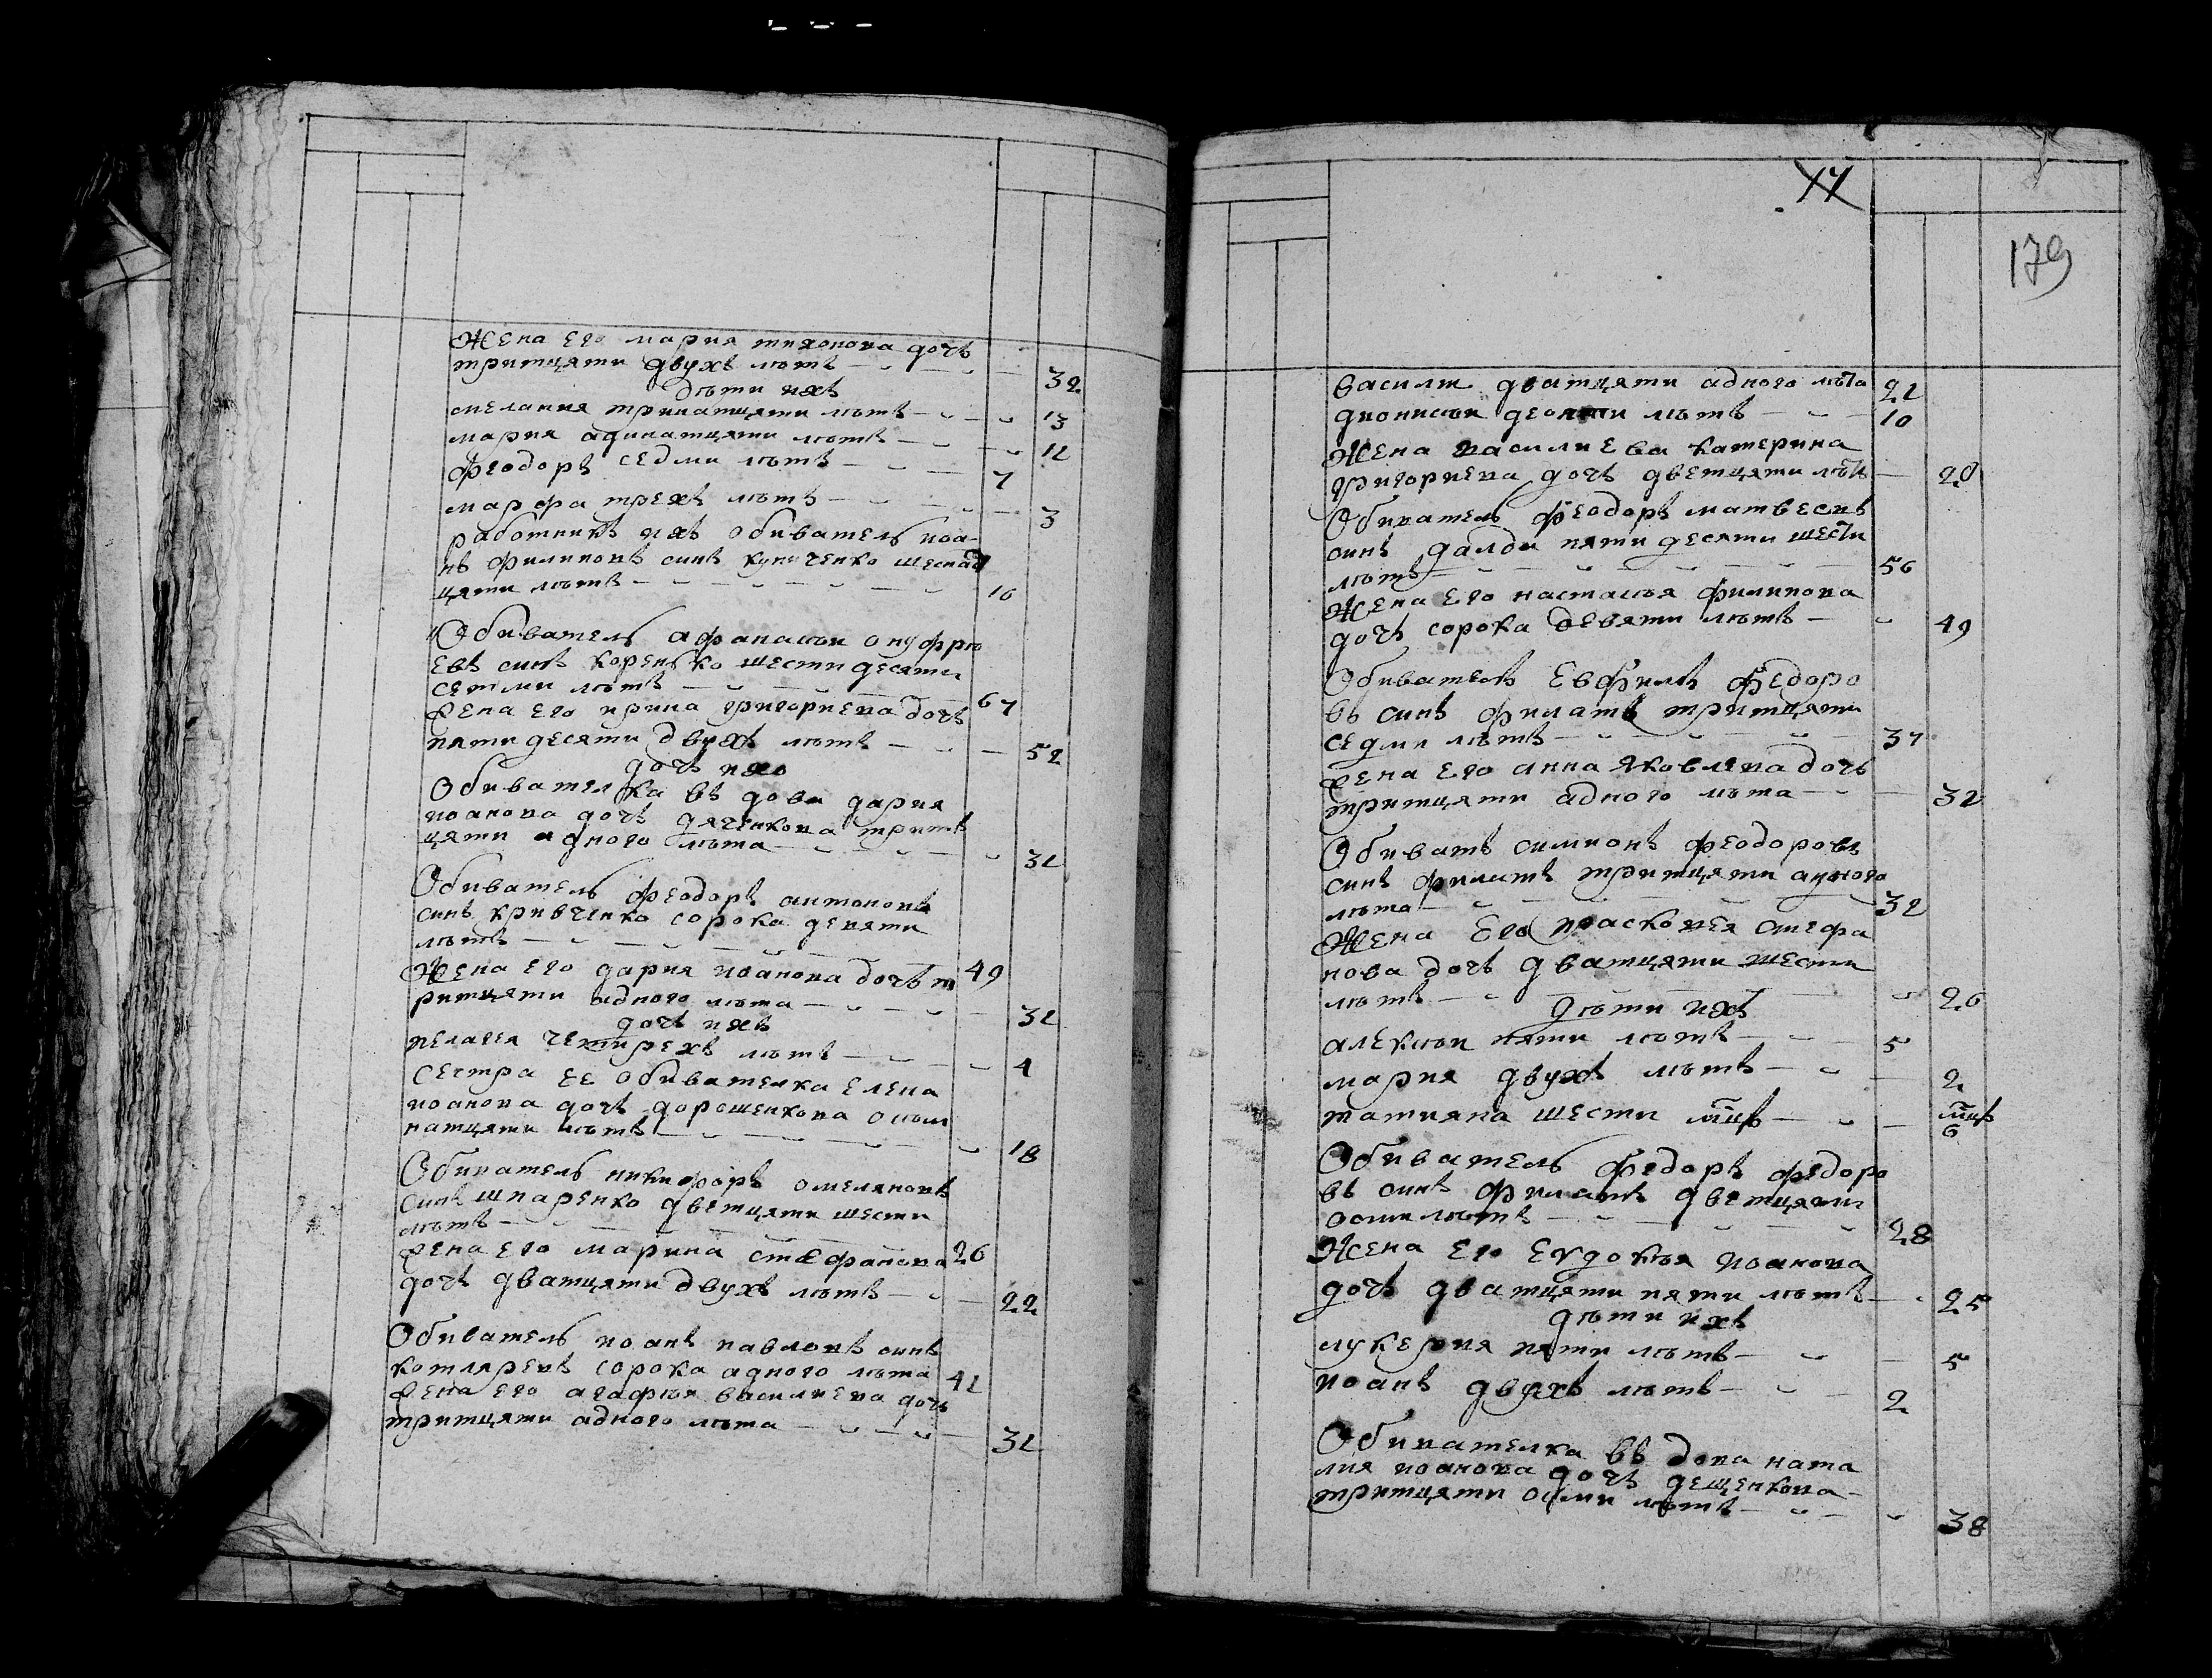 Жена его мария тихонова дочъ
тритцяти двухъ лѣтъ — 32
дѣти ихъ
мелания тринатцяти лѣтъ — 13
мария адинатцяти лѣтъ — 12
феодоръ седми лѣтъ — 7
марфа трехъ лѣтъ — 3
работникъ ихъ обиватель иоа-
нъ филиповъ синъ куниченко шеснад
цяти лѣтъ — 16
Обиватель афанасѣи онуфрѣ
евъ синъ коренько шестидесяти
сетми лѣтъ — 67
жена его ирина григориева дочъ
пятидесяти двухъ лѣтъ — 52
дочъ ихъ
Обивателка вдова дария
иоанова дочъ дяченкова тритъ
цяти адного лѣта — 31
Обиватель феодоръ антоновъ
синъ кривченко сорока девяти
лѣтъ — 49
Жена его дария иоанова дочъ т
ритцяти адного лѣта — 31
дочъ ихъ
пелагея четирехъ лѣтъ — 4
сестра ее обивателка елена
иоанова дочъ дорошенкова осьм
натцяти лѣтъ — 18
Обиватель никифоръ омеляновъ
синъ шпаренко дветцяти шести
лѣтъ — 26
жена его марина стефанова
дочъ дватцяти двухъ лѣтъ — 22
Обиватель иоанъ павловъ синъ
котляревъ сорока адного лѣта 41
жена его агафѣя василиева дочъ
тритцяти адного лѣта — 31
77
179
василѣ дватцяти адного лѣта 21
дионисѣи десяти лѣтъ — 10
Жена василиева катерина
григориева дочъ дветцяти лѣтъ — 20
Обиватель феодоръ матвеевъ
синъ далди пятидесяти шести
лѣтъ — 56
Жена его настасѣя филипова
дочъ сорока девяти лѣтъ — 49
Обиватель евфимъ федоро
въ синъ филатъ тритцяти
седми лѣтъ — 37
жена его анна яковлева дочъ
тритцяти адного лѣта — 31
Обиватъ симионъ феодоровъ
синъ филатъ тритцяти адного
лѣта — 31
Жена его прасковея стефа
нова дочъ дватцяти шести
лѣтъ — 26
дѣти ихъ
алексѣи пяти лѣтъ — 5
мария двухъ лѣтъ — 2
татияна шести мцъ — мцъ 6
Обиватель федоръ федоро
въ синъ филатъ дветцяти
осми лѣтъ — 28
Жена его евдокѣя иоанова
дочъ дватцяти пяти лѣтъ — 25
дѣти ихъ
лукерия пяти лѣтъ — 5
иоанъ двухъ лѣтъ — 2
Обивателка въдова ната
лия иоанова дочъ дещенкова
тритцяти осми лѣтъ — 38